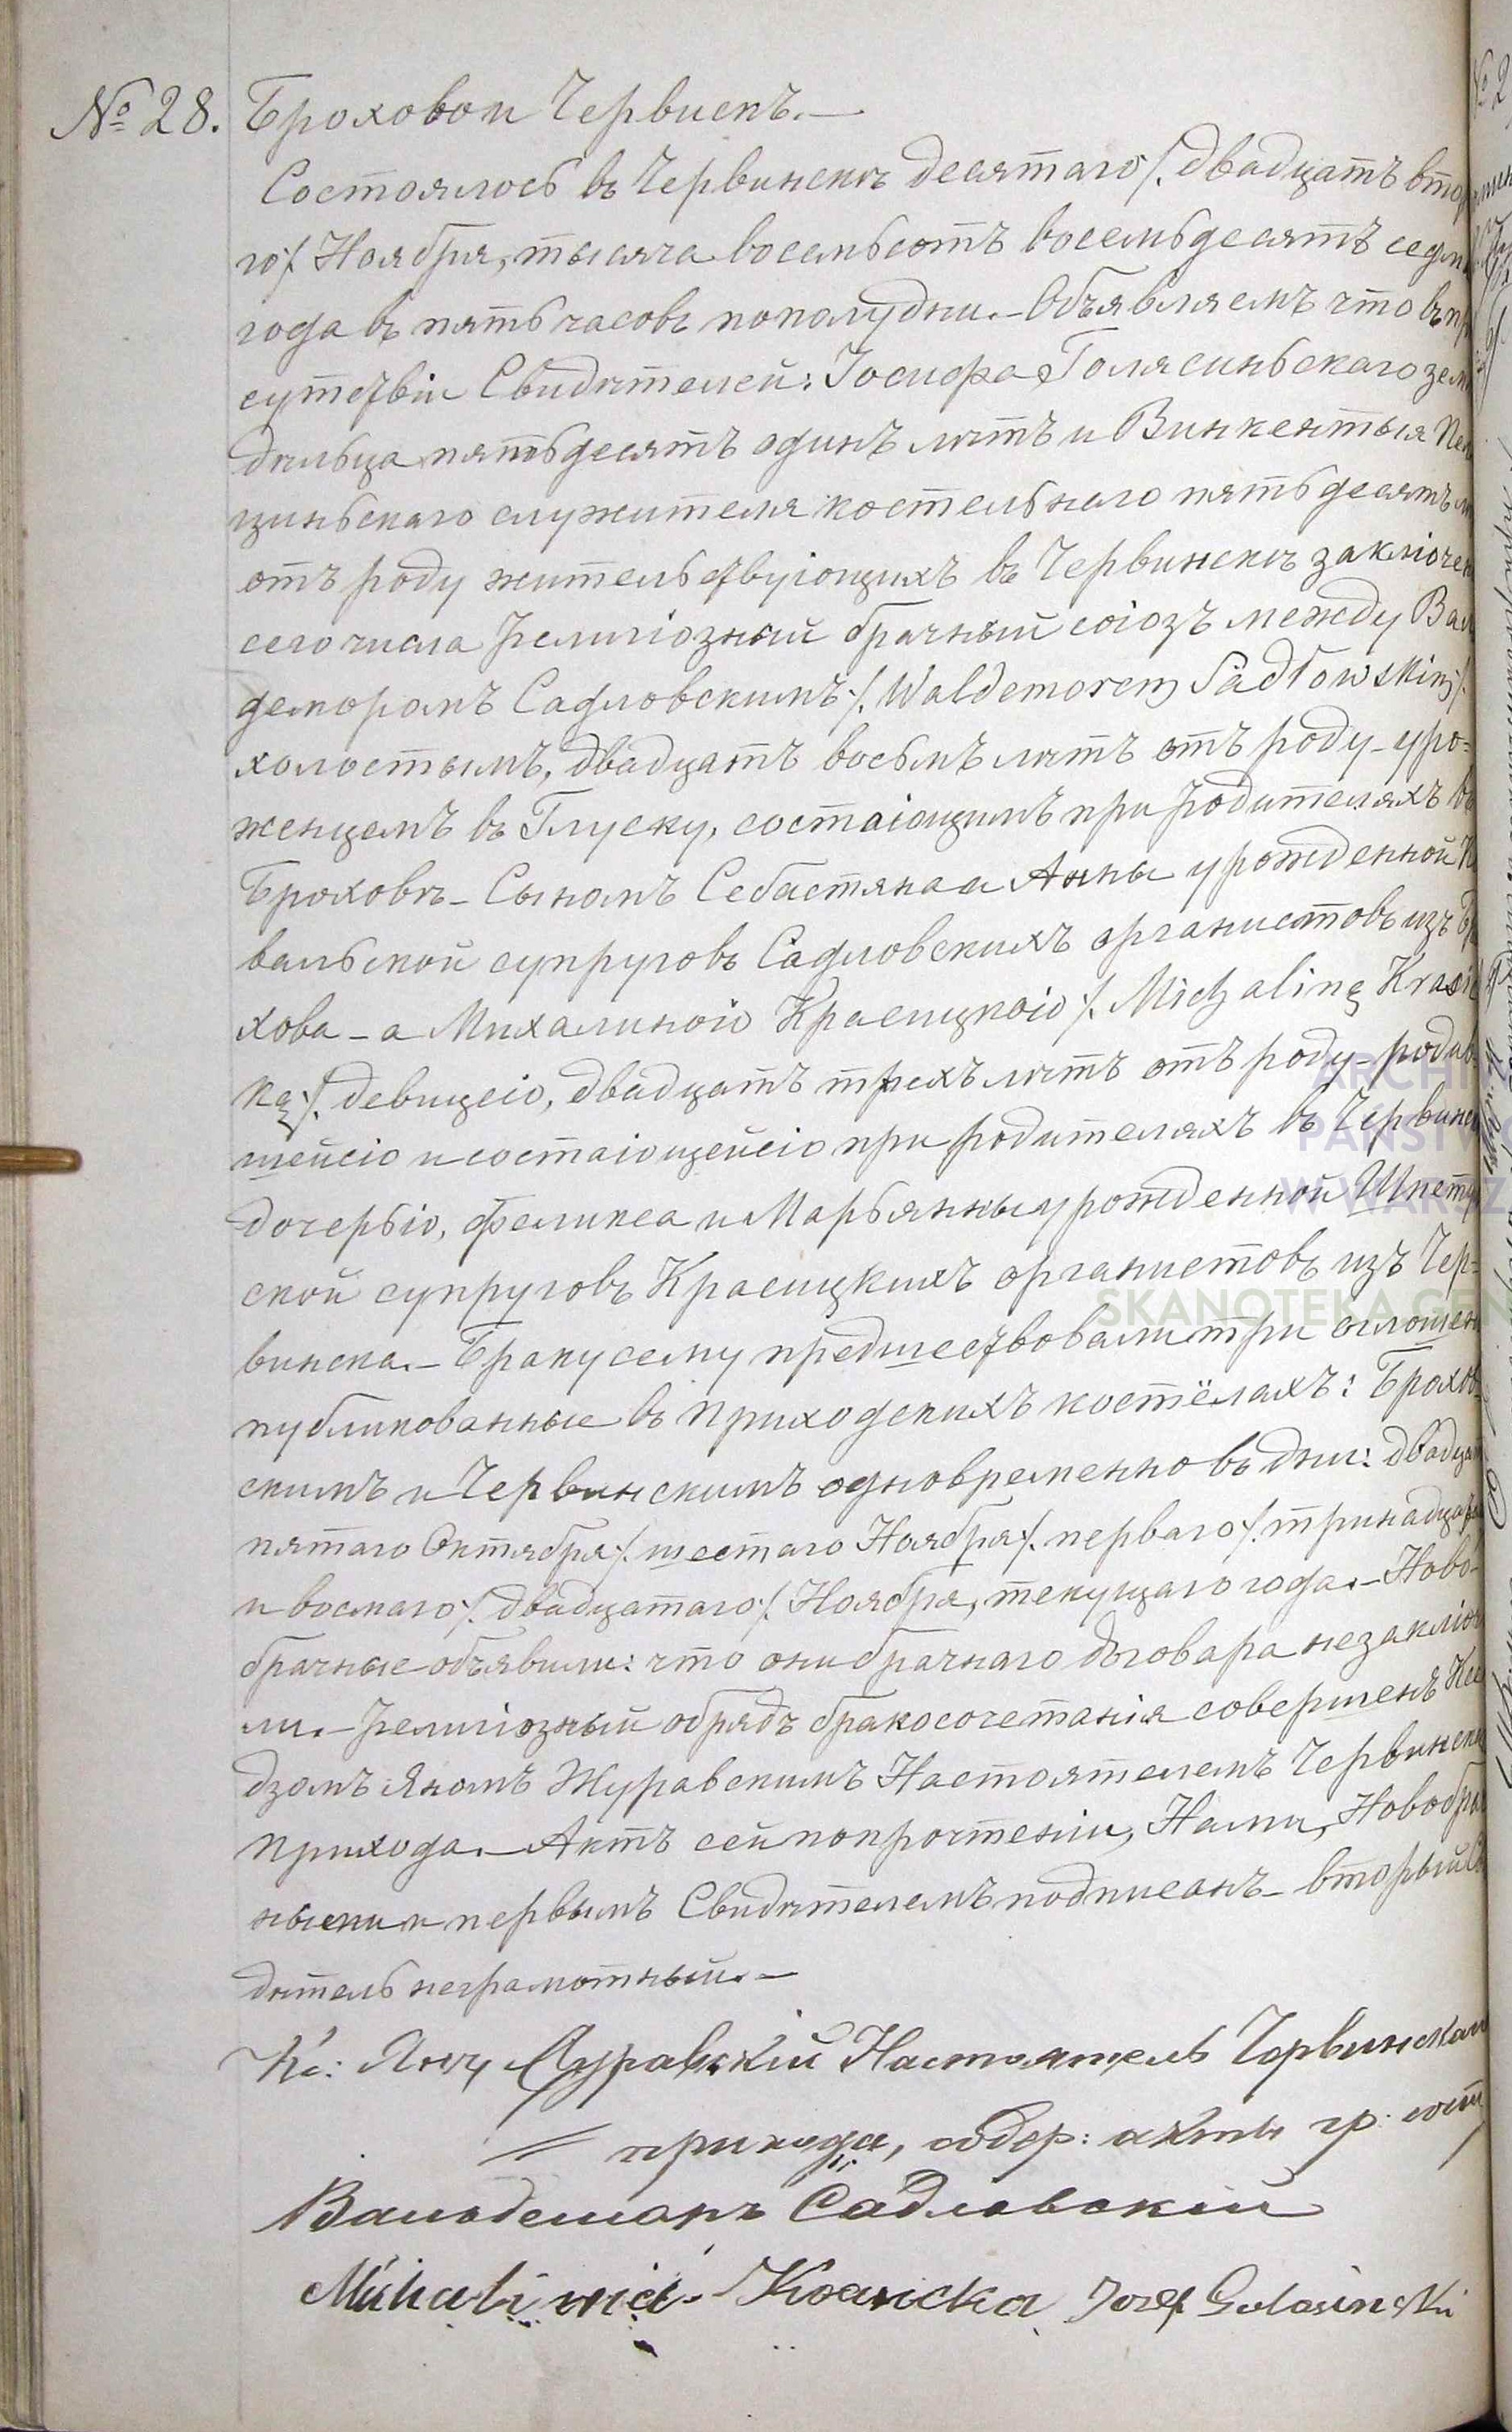 № 28. Броховои Червиекъ.—
Состоялось въ Червинскѣ десятаго /. двадцатъ второ
го/. Ноября, тысяча восемьсотъ восемьдесятъ седьм
года въ пять часовъ пополудни.– Объявляемъ что въ пр
сутствіи Свидѣтелей: Іосифа Голясиньскаго земл
дѣльца пятьдесятъ одинъ лѣтъ и Винкентыя
циньскаго служителя костельнаго пятьдесятъ
отъ роду жительствующихъ въ Червинскѣ заключен
сего числа религіозный брачный союзъ между Вал
демаромъ Садловскимъ /. Waldemarem Sadłowskim /.
холостымъ, двадцатъ восьмъ лѣтъ отъ роду – уро=
женцемъ въ Глуску, состаіощимъ при родителяхъ въ
Броховѣ – Сыномъ Себастяна и Анны урожденной
вальской супруговъ Садловскихъ органистовъ изъ Бр
хова – а Михалиною Красицкою /. Michaliną Krasic
ką /. девицею, двадцатъ трехъ лѣтъ отъ роду – родив
шейсю и состаіощейсю при родителяхъ въ Червинс
дочерью, Феликса и Марьянны урожденной Шпет
ской супруговъ Красицкихъ органистовъ изъ Чер=
винска.– Браку сему предшествовали три оглошен
публикованные въ приходскихъ костёлахъ: Брохов
скимъ и Червинскимъ одновременно въ дни: двадца
пятаго Октября /. шестаго Ноября /. перваго /. тринадца
и восмаго /. двадцатаго /. Ноября, текущаго года.– Ново=
брачные объявили: что они брачнаго договара незаключ
ли.– Религіозный обрядъ бракосочетанія совершенъ Ксе
дзомъ Яномъ Журавскимъ Настоятелемъ Червинск
прихода.– Актъ сей попрочтеніи, Нами, Новобра
ными и первымъ Свидѣтелемъ подписанъ – вторый Сви
дѣтель неграмотный.–
Кс: Янъ Журавскій Настоятель Червинскаго
прихода, содер: акты гр: сост
Вальдемаръ Садловскій
Michalina Krasicka Józef Golasinski
ARCHIW
PAŃSTWO
W WARSZ
SKANOTEKA.GEN